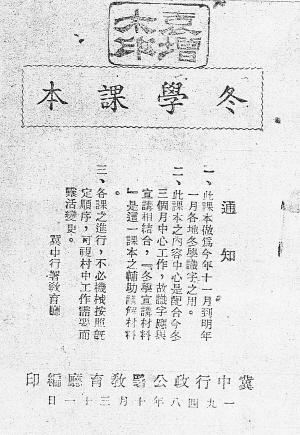 冬學課本
通知
一、此課本做爲今年十一月到明年
一月各地冬學識字之用。
二、此課本之內容中心是配合今冬
三個月中心工作，故識字應與
宣講相結合，『冬學宣講材料
』是這一課本之輔助講解材料
。
三、各課之進行，不必機械按照旣
定順序，可視村中工作需要而
靈活變更。
冀中行署敎育廳
冀中行政公署敎育廳編印
一九四八年十月三十一日